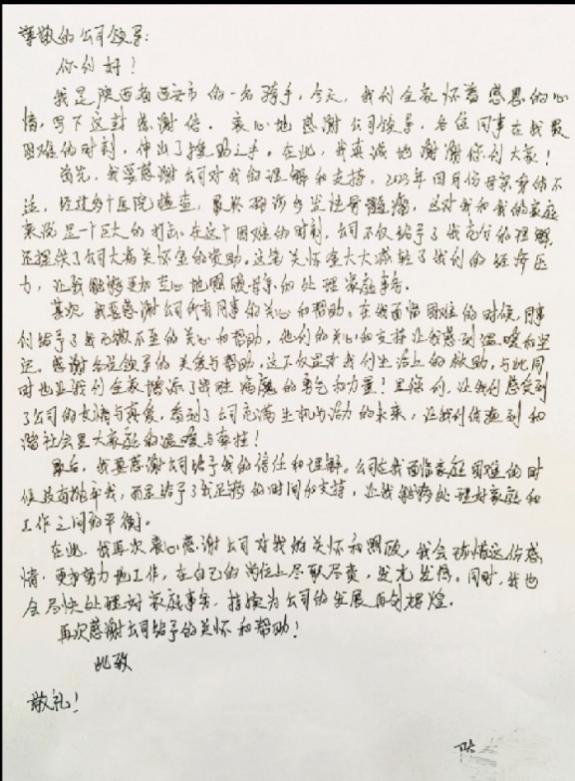 尊敬的公司领导:
你们好!
我是陕西省西安市的一名骑手,今天,我们全家怀着感恩的心
情,写下这封感谢信。衷心地感谢公司领导,各位同事在我最
困难的时刻,伸出了援助之手。在此,我真诚地谢谢你们大家!
首先,我要感谢公司对我的理解和支持,2023年四月份母亲身体不
适,经过多个医院检查,最终确诊多发性骨髓瘤,这对我和我的家庭
来说是一个巨大的打击。在这个困难的时刻,公司不仅给予了我充分的理解,
还提供了公司大病关怀金的资助。这笔关怀金大大减轻了我们的经济压
力,让我能够更加安心地照顾母亲的处理家庭事务。
其次,我要感谢公司所有同事的关心和帮助。在我面临困难的时候,同事
们给予了我无微不至的关心和帮助,他们的关心和支持让我感到温暖和坚
定。感谢各位领导的关爱与帮助,这不仅是对我们生活上的救助,与此同
时也让我们全家增添了战胜病魔的勇气和力量!里,让我们感受到
了公司的真情与真爱,看到了公司充满生机与活力的未来,让我们体验到和
谐社会是大家庭的温暖与幸福!
最后,我要感谢公司给予我的信任和理解。公司在我面临家庭困难的时
候没有抛弃我,而是给予了我足够的时间和支持,让我能够处理好家庭和
工作之间的平衡。
在此,我再次衷心感谢公司对我的关怀和照顾,我会珍惜这份感
情,更加努力地工作,在自己的岗位上尽职尽责,发光发热。同时,我也
会尽快处理好家庭事务,持续为公司的发展再创辉煌。
再次感谢公司给予的关怀和帮助!
此致
敬礼!